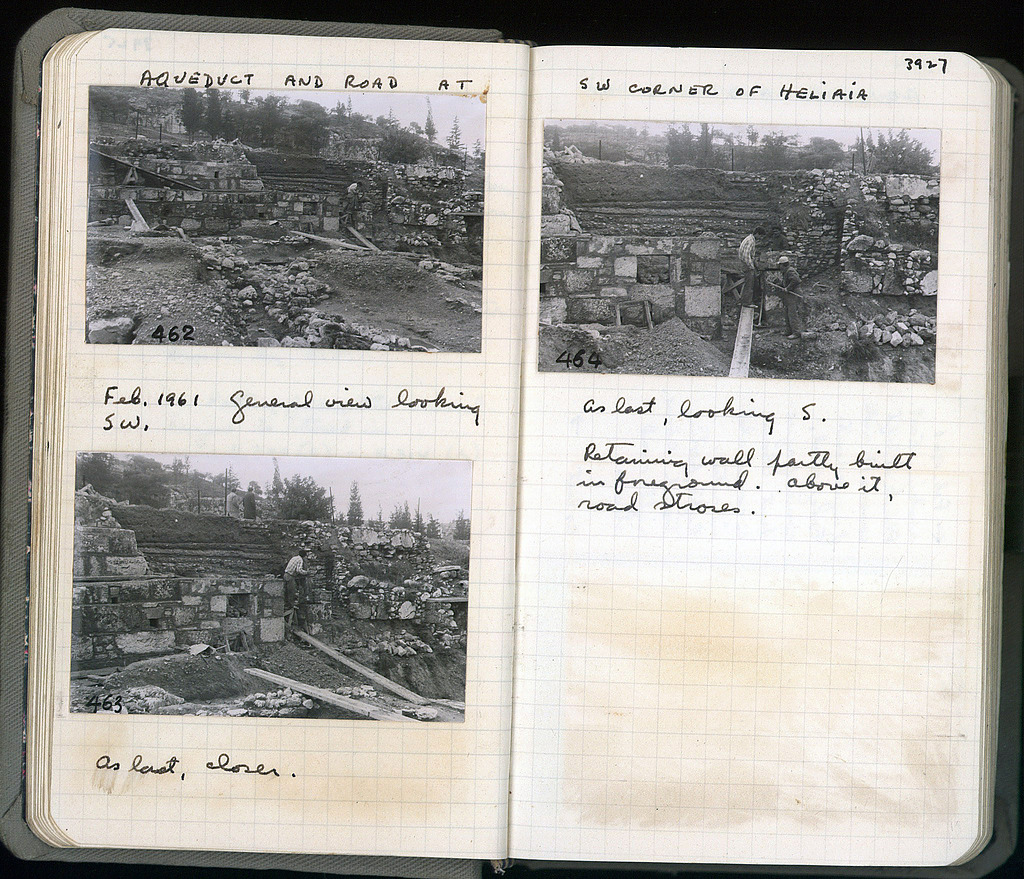 AQUEDUCT AND ROAD AT
462
Feb. 1961 General view looking
SW.
463
as last, closer.
3927
SW CORNER OF HELIAIA
464
as last, looking S.
Retaining wall partly built
in foreground. above it,
road stroses.